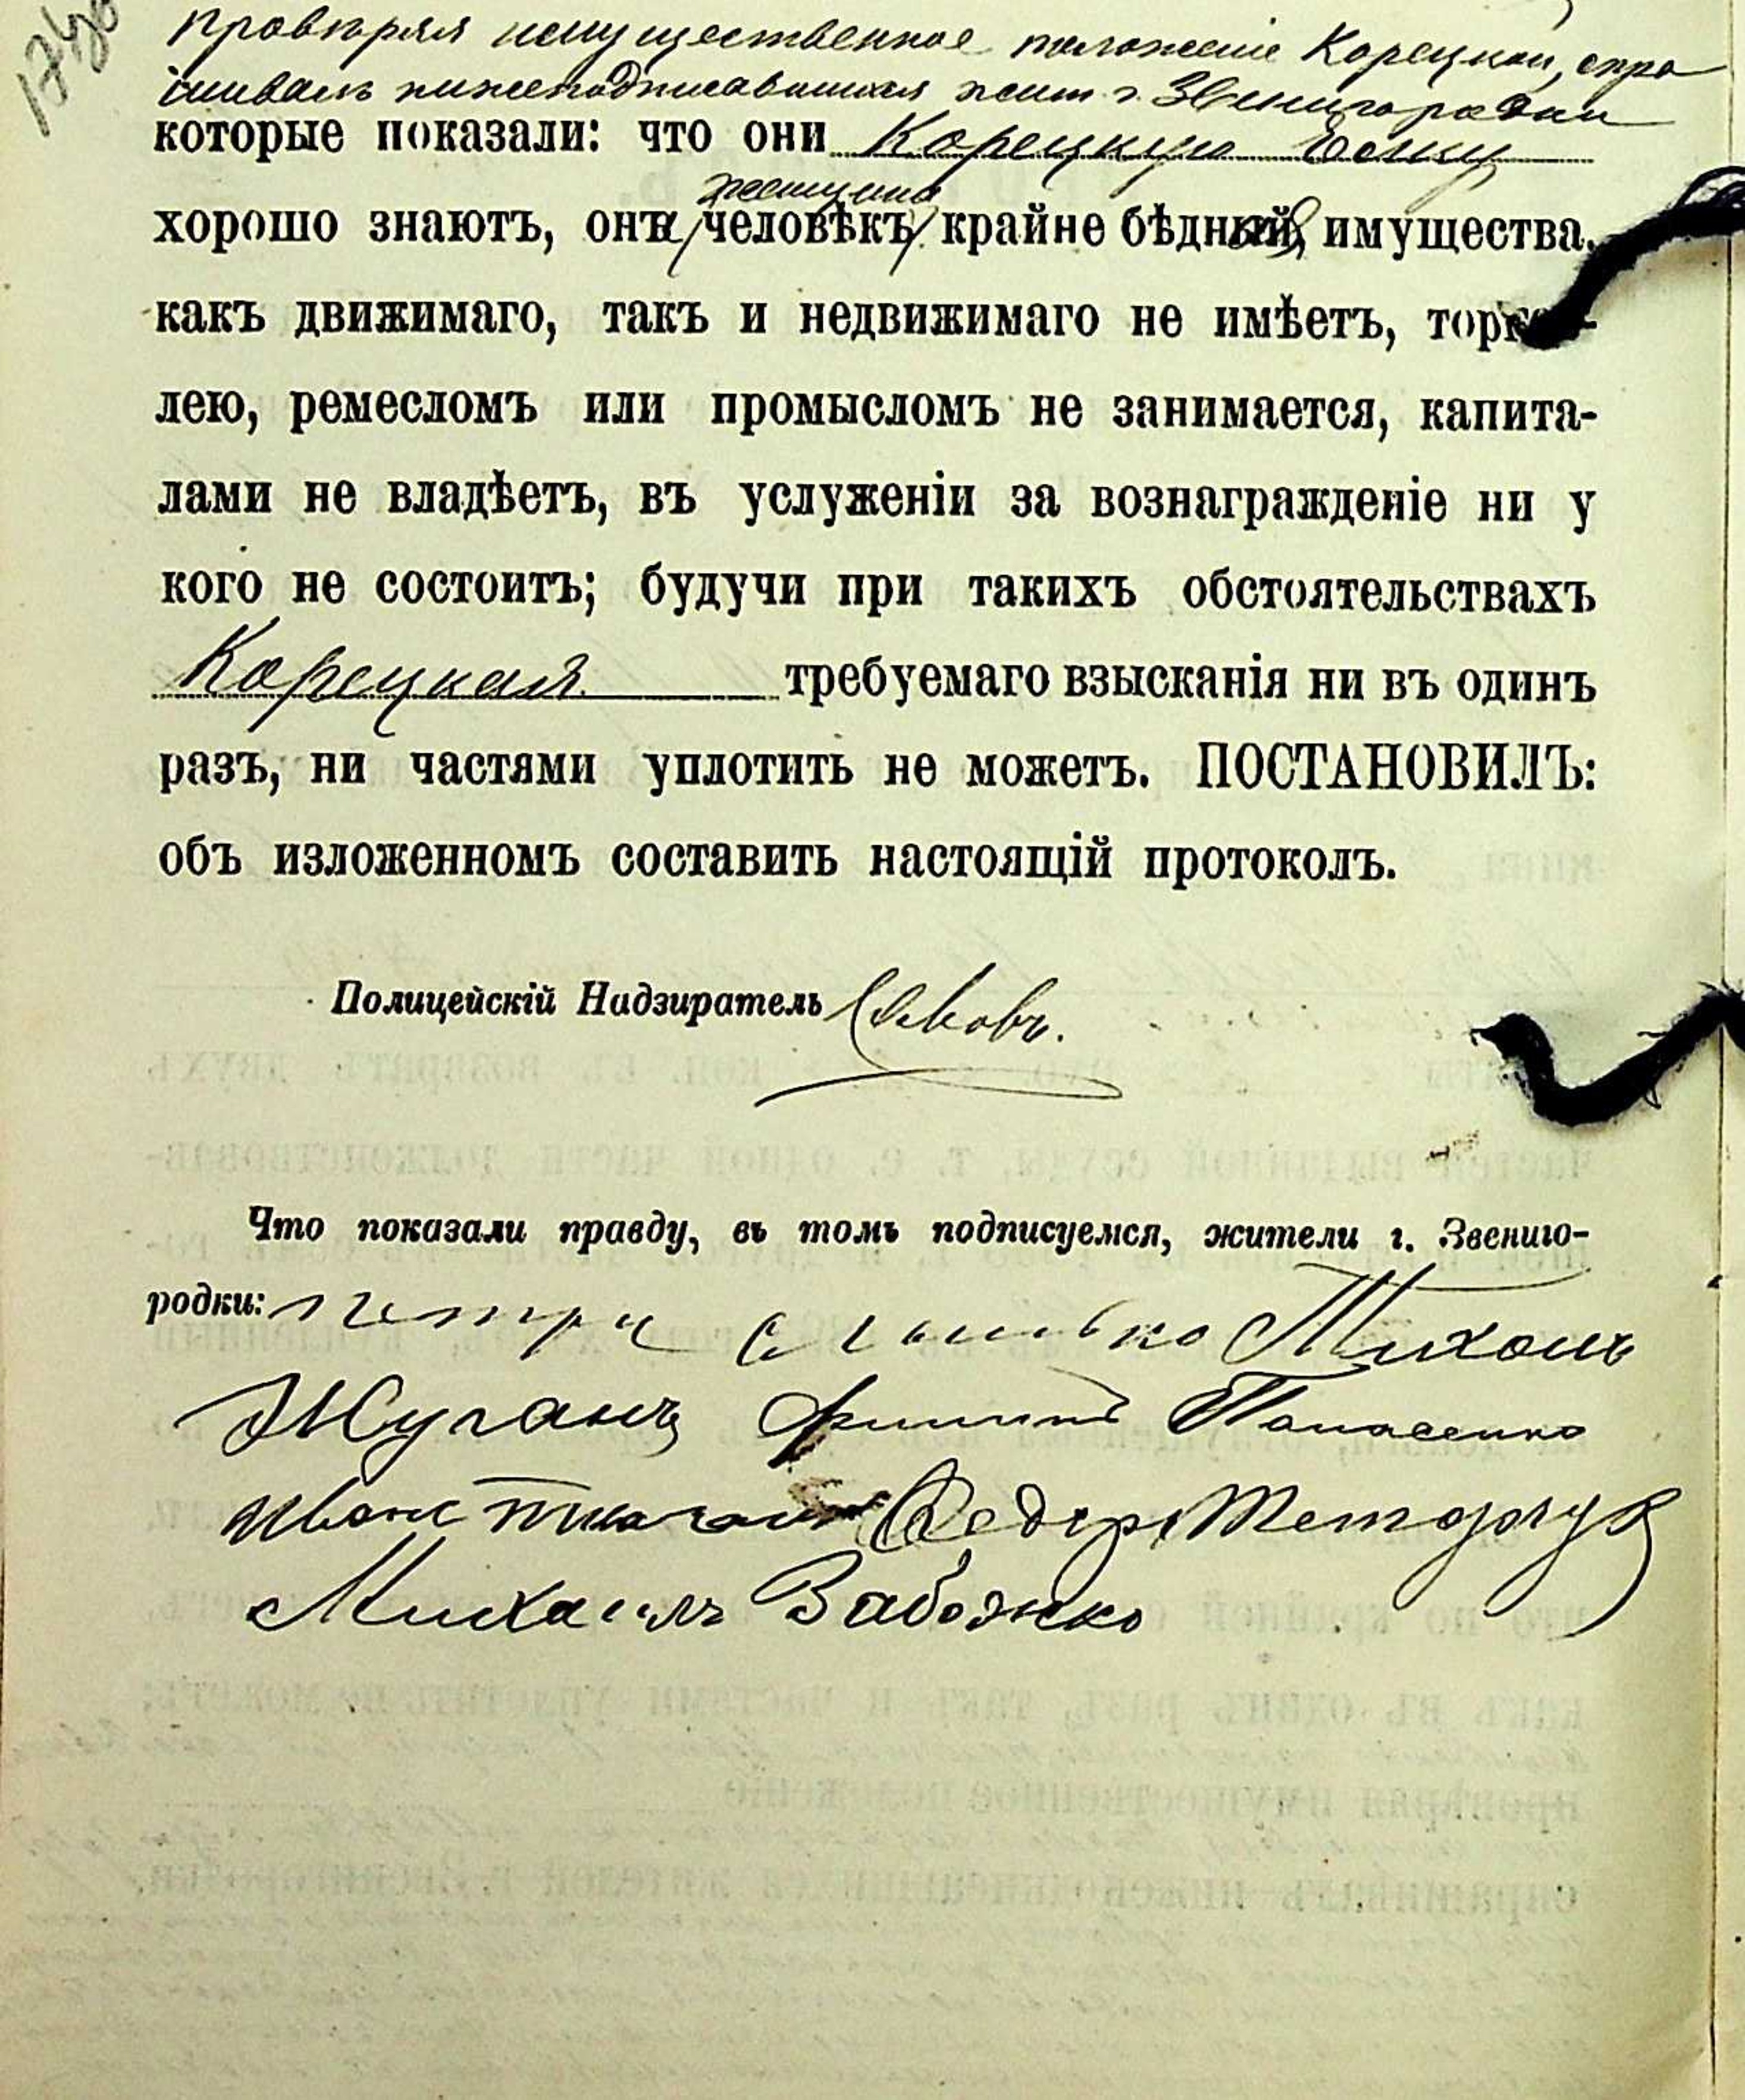 провѣряя имущественное положеніе Корецкой, спра
шивалъ нижеподписавшихся жит. г. Звенигородки
которые показали: что они Корецкую Енту
женщина
хорошо знаютъ, она (человѣкъ) крайне бѣдная, имущества,
какъ движимаго, такъ и недвижимаго не имѣетъ, торгов-
лею, ремесломъ или промысломъ не занимается, капита-
лами не владѣетъ, въ услуженіи за вознагражденіе ни у
кого не состоитъ; будучи при такихъ обстоятельствахъ
Корецкая требуемаго взысканія ни въ одинъ
разъ, ни частями уплотить не можетъ. ПОСТАНОВИЛЪ:
объ изложенномъ составить настоящій протоколъ.
Полицейскій Надзиратель
Что показали правду, въ томъ подписуемся, жители г. Звениго-
родки: Петри Тихонъ
Жуганъ Филипъ Панасенко
Иванъ Федоръ
Михаилъ Забожко